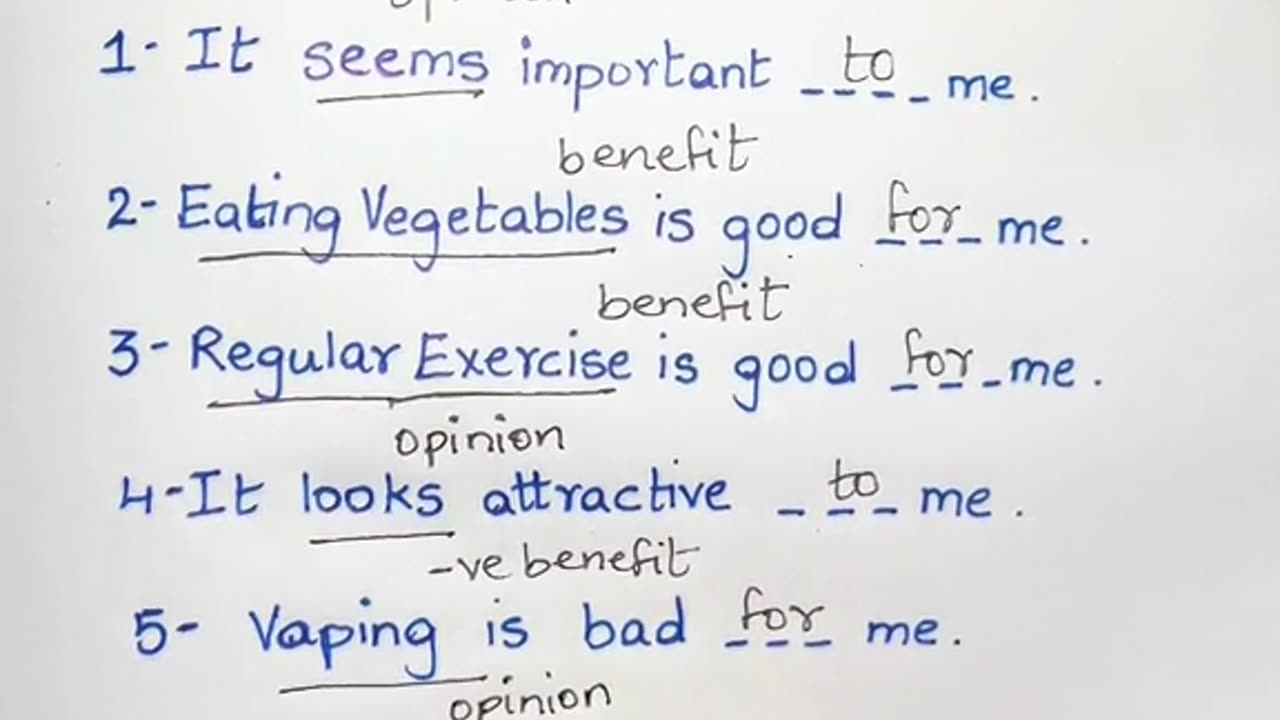 1- It seems important _to_ me.
benefit
2- Eating Vegetables is good _for_ me.
benefit
3- Regular Exercise is good _for_ me.
opinion
4- It looks attractive _to_ me.
-ve benefit
5- Vaping is bad _for_ me.
opinion